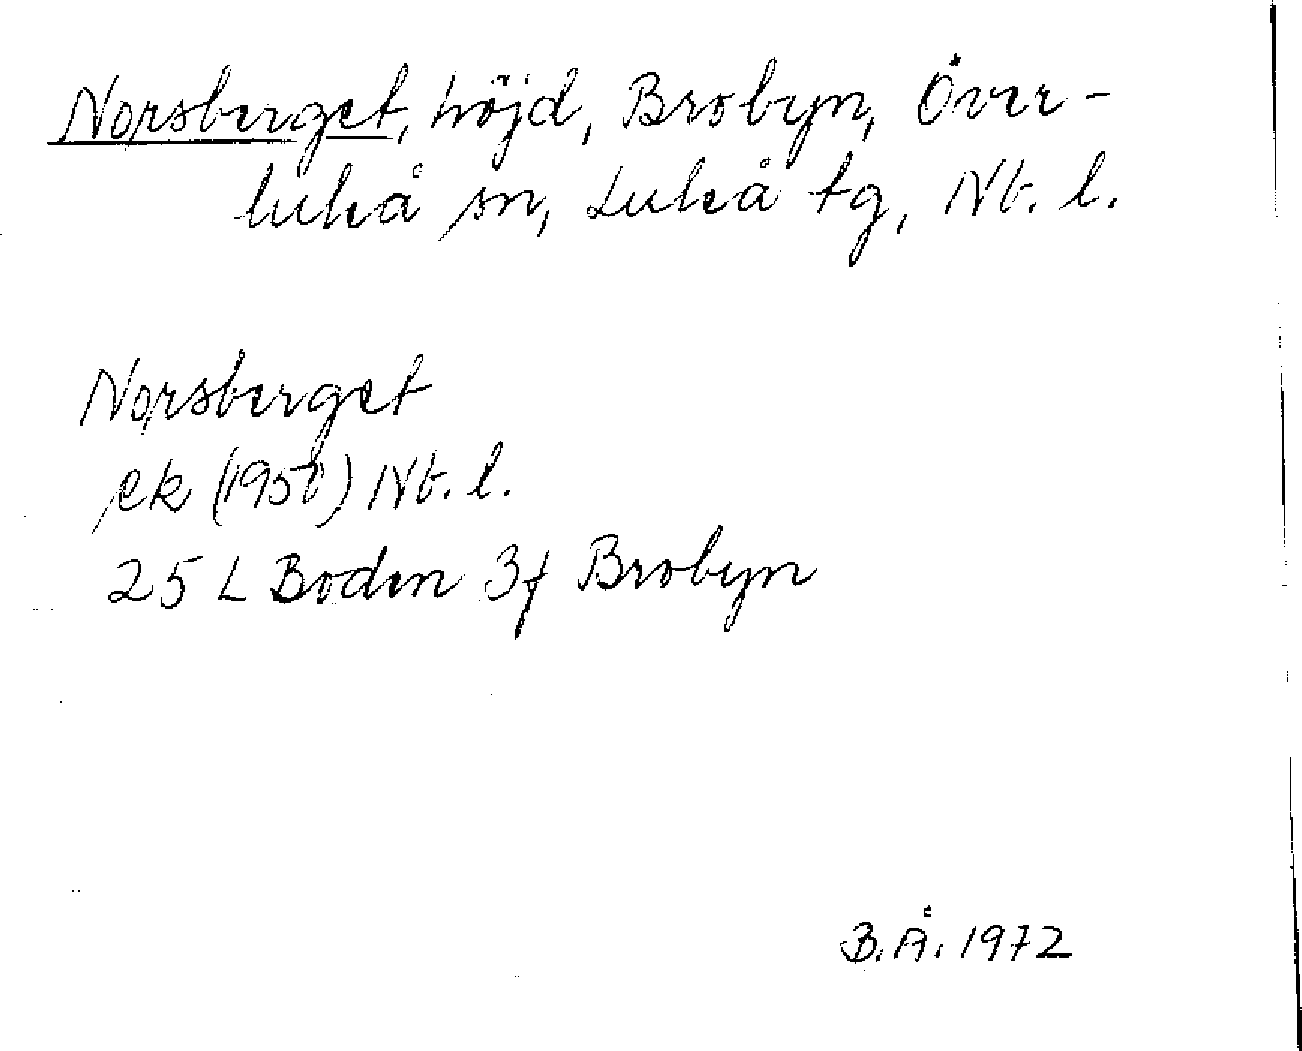 Norsberget, höjd, Brobyn, Över-
luleå sn, Luleå tg, Nb. l.
Norsberget
ek (1950) Nb. l.
25 L Boden 3f Brobyn
B.Å. 1972